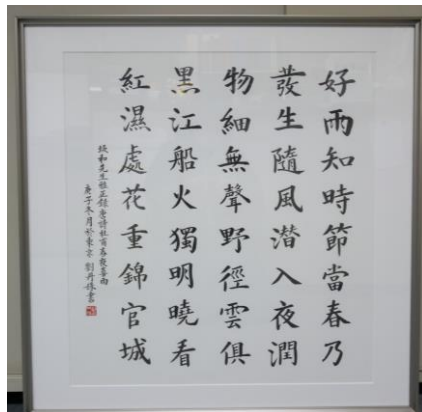 好雨知時節當春乃
發生隨風潜入夜潤
物細無聲野徑雲俱
黑江船火獨明曉看
紅濕處花重錦官城
和先生雅正錄唐詩杜甫春夜喜雨
庚子冬月於東京 劉丹書